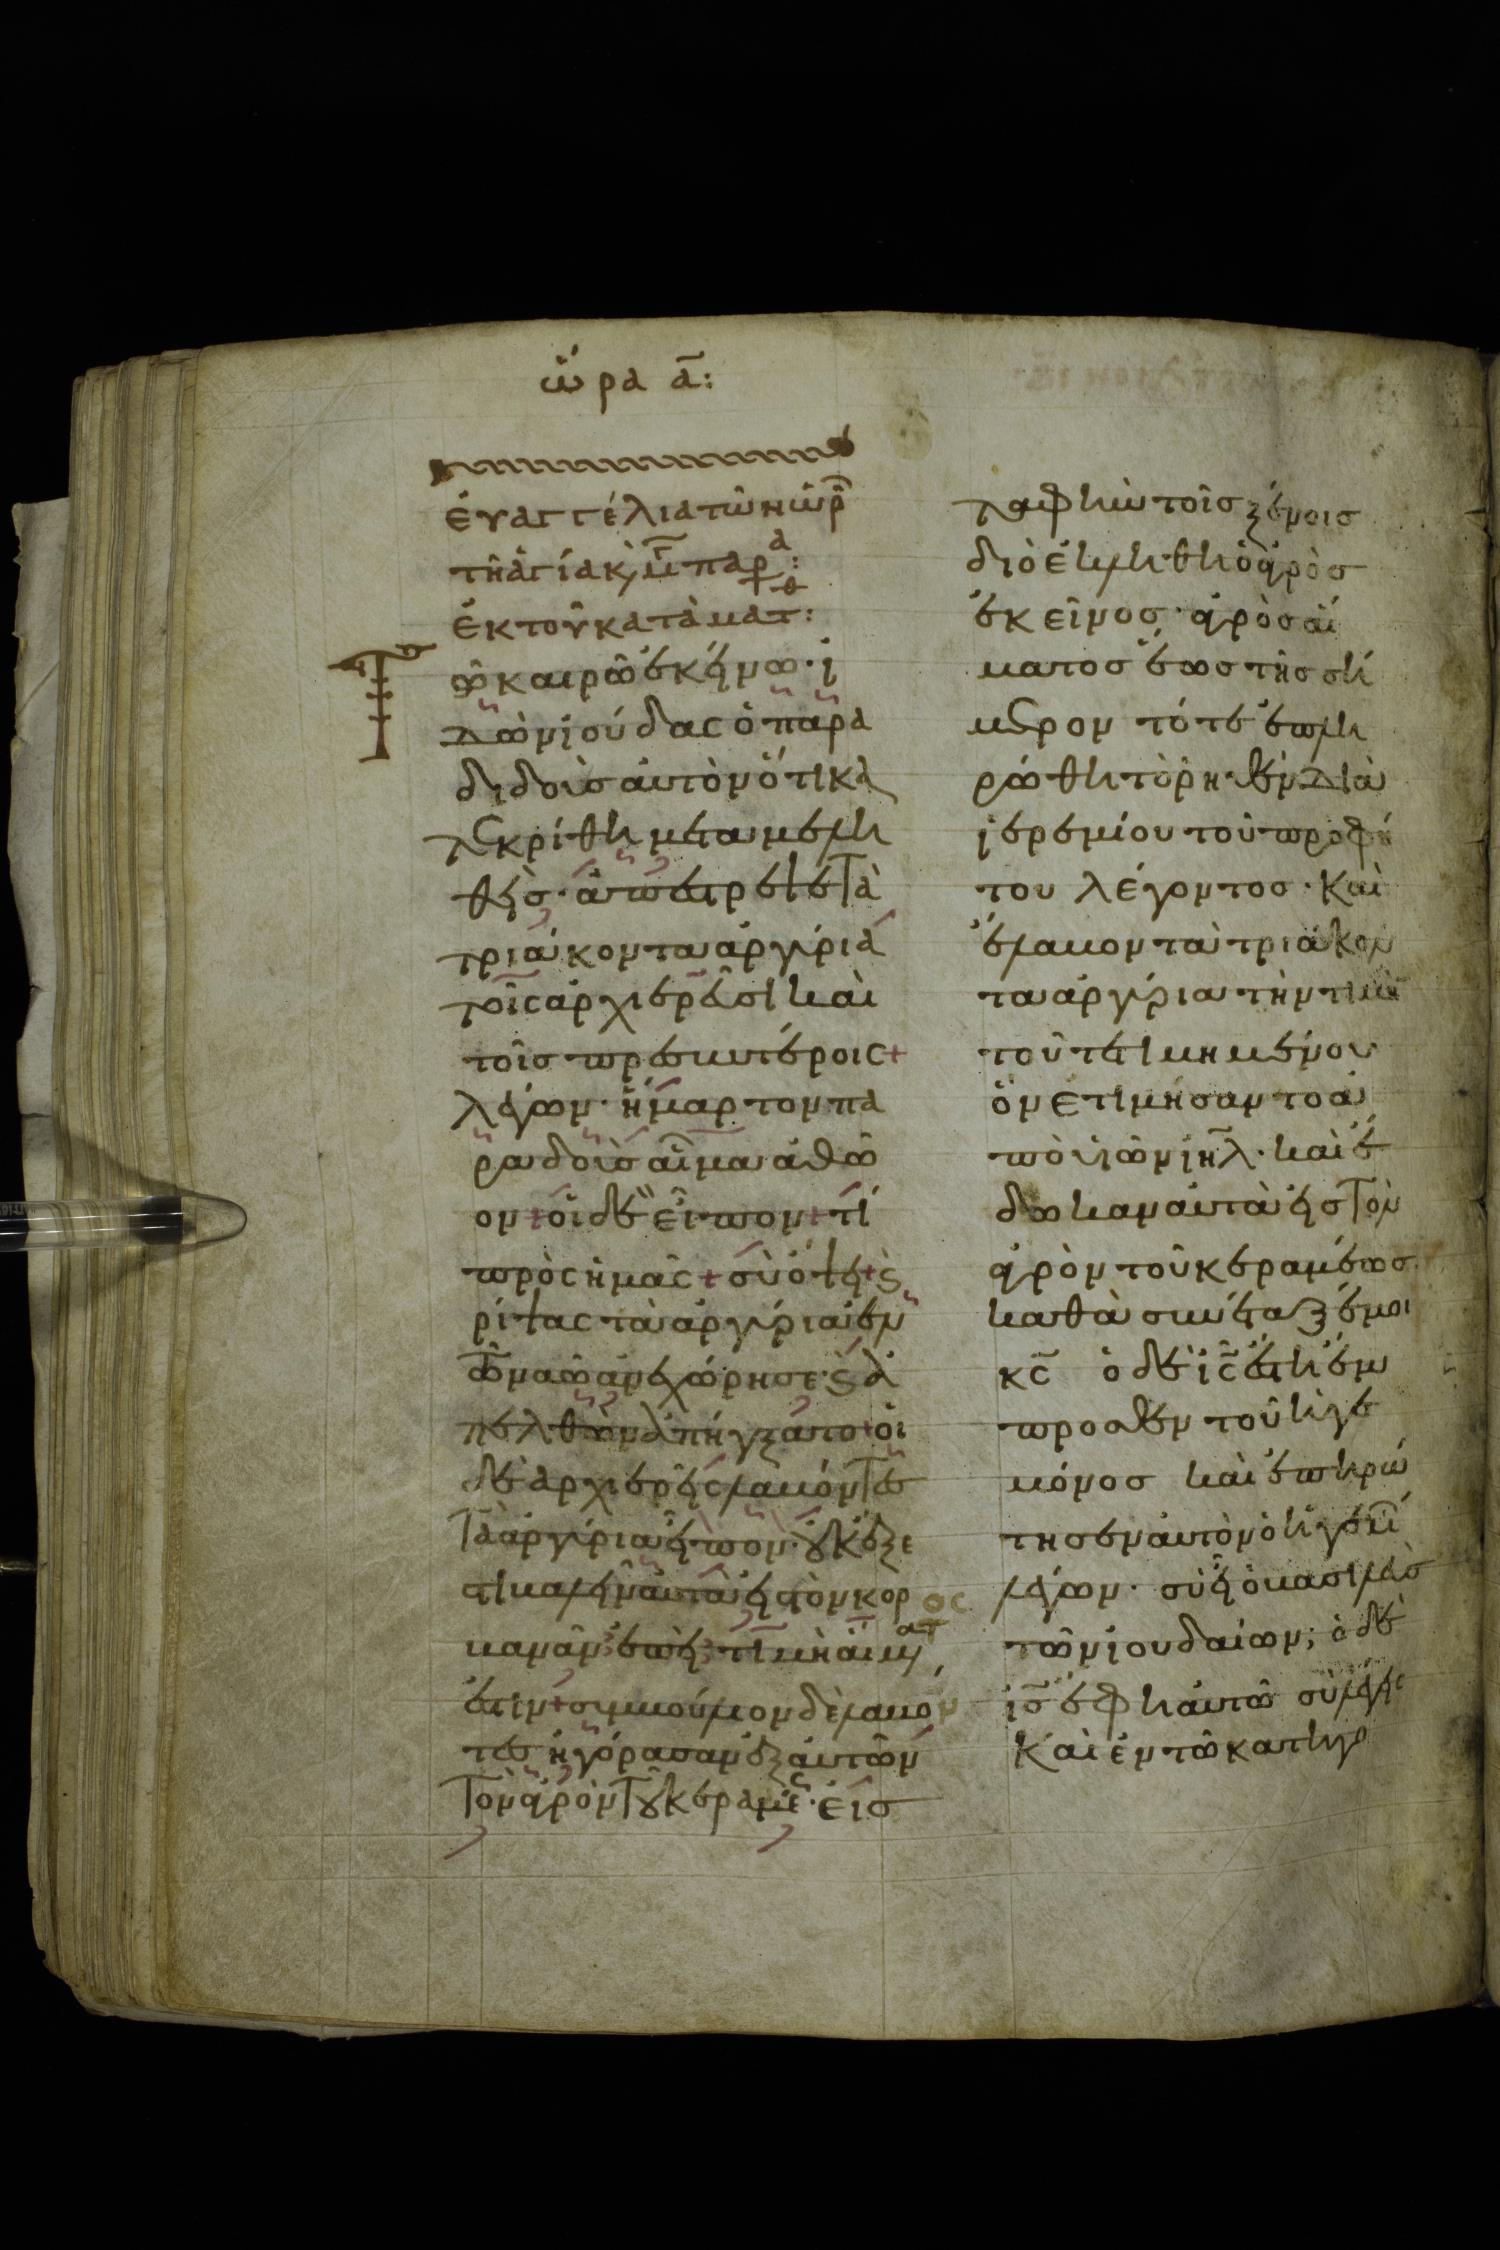 ὥρα α̅:
ἐυαγγέλια τῶν ὡρ
τῆ ἁγία κ, μ̅γ παρα:
ἐκ τοῦ κατὰ ματθ:
Τῶ καιρῶ ἐκείνω· ἰ
δὼν ἰούδας ὁ παρα
διδοὺσ ἀυτὸν ὅτι κα
τεκρίθη μεταμελη
θεὶσ· ἀπέστρεψε τὰ
τριάκοντα ἀργύρια
τοῖς ἀρχιερεῦσι καὶ
τοῖσ πρεσβυτέροις+
λέγων· ἥμαρτον πα
ραδοὺσ αἷμα ἀθῶ
ον+ οἱ δὲ εἶπον+ τί
πρὸς ἡμᾶς+ σὺ ὄψει+ ϛ
ρίψας τὰ ἀργύρια ἐν
τῶ ναῶ ἀνεχώρησε· ϛ ἀ
πελθὼν ἀπήγξατο+ οἱ
δὲ ἀρχιερεῖς λαβόντες
τὰ ἀργύρια εἶπον· ȣκ ἔξε
στι βαλεῖν ἀυτὰ εἰς τὸν κορ
βανᾶν· ἐπεὶ τιμὴ αἵματος
ἐστιν+ συμβούλιον δὲ λαβόν
τεσ ἠγόρασαν ἐξ ἀυτῶν
τὸν ἀγρὸν τȣ κεραμέως· εἰσ
ταφὴν τοῖσ ξένοισ
διὸ ἐκλήθη ὁ ἀγρὸσ
ἐκεῖνος· ἀγρὸσ αἵ
ματοσ ἕωσ τῆσ σή
μερον τότε ἐπλη
ρώθη τὸ ρηθὲν διὰ
ἰερεμίου τοῦ προφή
του λέγοντοσ· καὶ
ἔλαβον τὰ τριάκον
τα ἀργύρια τὴν τιμὴν
τοῦ τετιμημένου
ὃν ἐτιμήσαντο ἀ
πὸ υἱῶν ἰη̅λ· καὶ ἔ
δωκαν ἀυτὰ εἰσ τὸν
ἀγρὸν τοῦ κεραμέωσ
καθὰ συνέταξέ μοι
κ̅ς ὁ δὲ ἰ̅ς ἔστη ἔμ
προσθεν τοῦ ἡγε
μόνοσ καὶ ἐπηρώ
τησεν ἀυτὸν ὁ ἡγεμὼν
λέγων· σὺ εἶ ὁ βασιλεὺσ
τῶν ἰουδαίων; ὁ δὲ
ἰ̅σ ἔφη ἀυτῶ σὺ λέγεισ
καὶ ἐν τῶ κατηγο